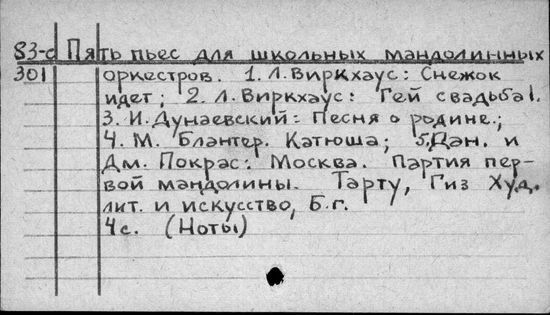 83-с Пять пьес для школьных мандолинных
301 оркестров. 1. Л. Виркхаус: Снежок
идет; 2. Л. Виркхаус: Гей свадьба!.
3. И. Дунаевский: Песня о родине.;
4. М. Блантер. Катюша; 5. Дан. и
Дм. Покрас: Москва. Партия пер-
вой мандолины. Тарту, Гиз Худ.
лит. и искусство, Б.г.
4с. (Ноты)